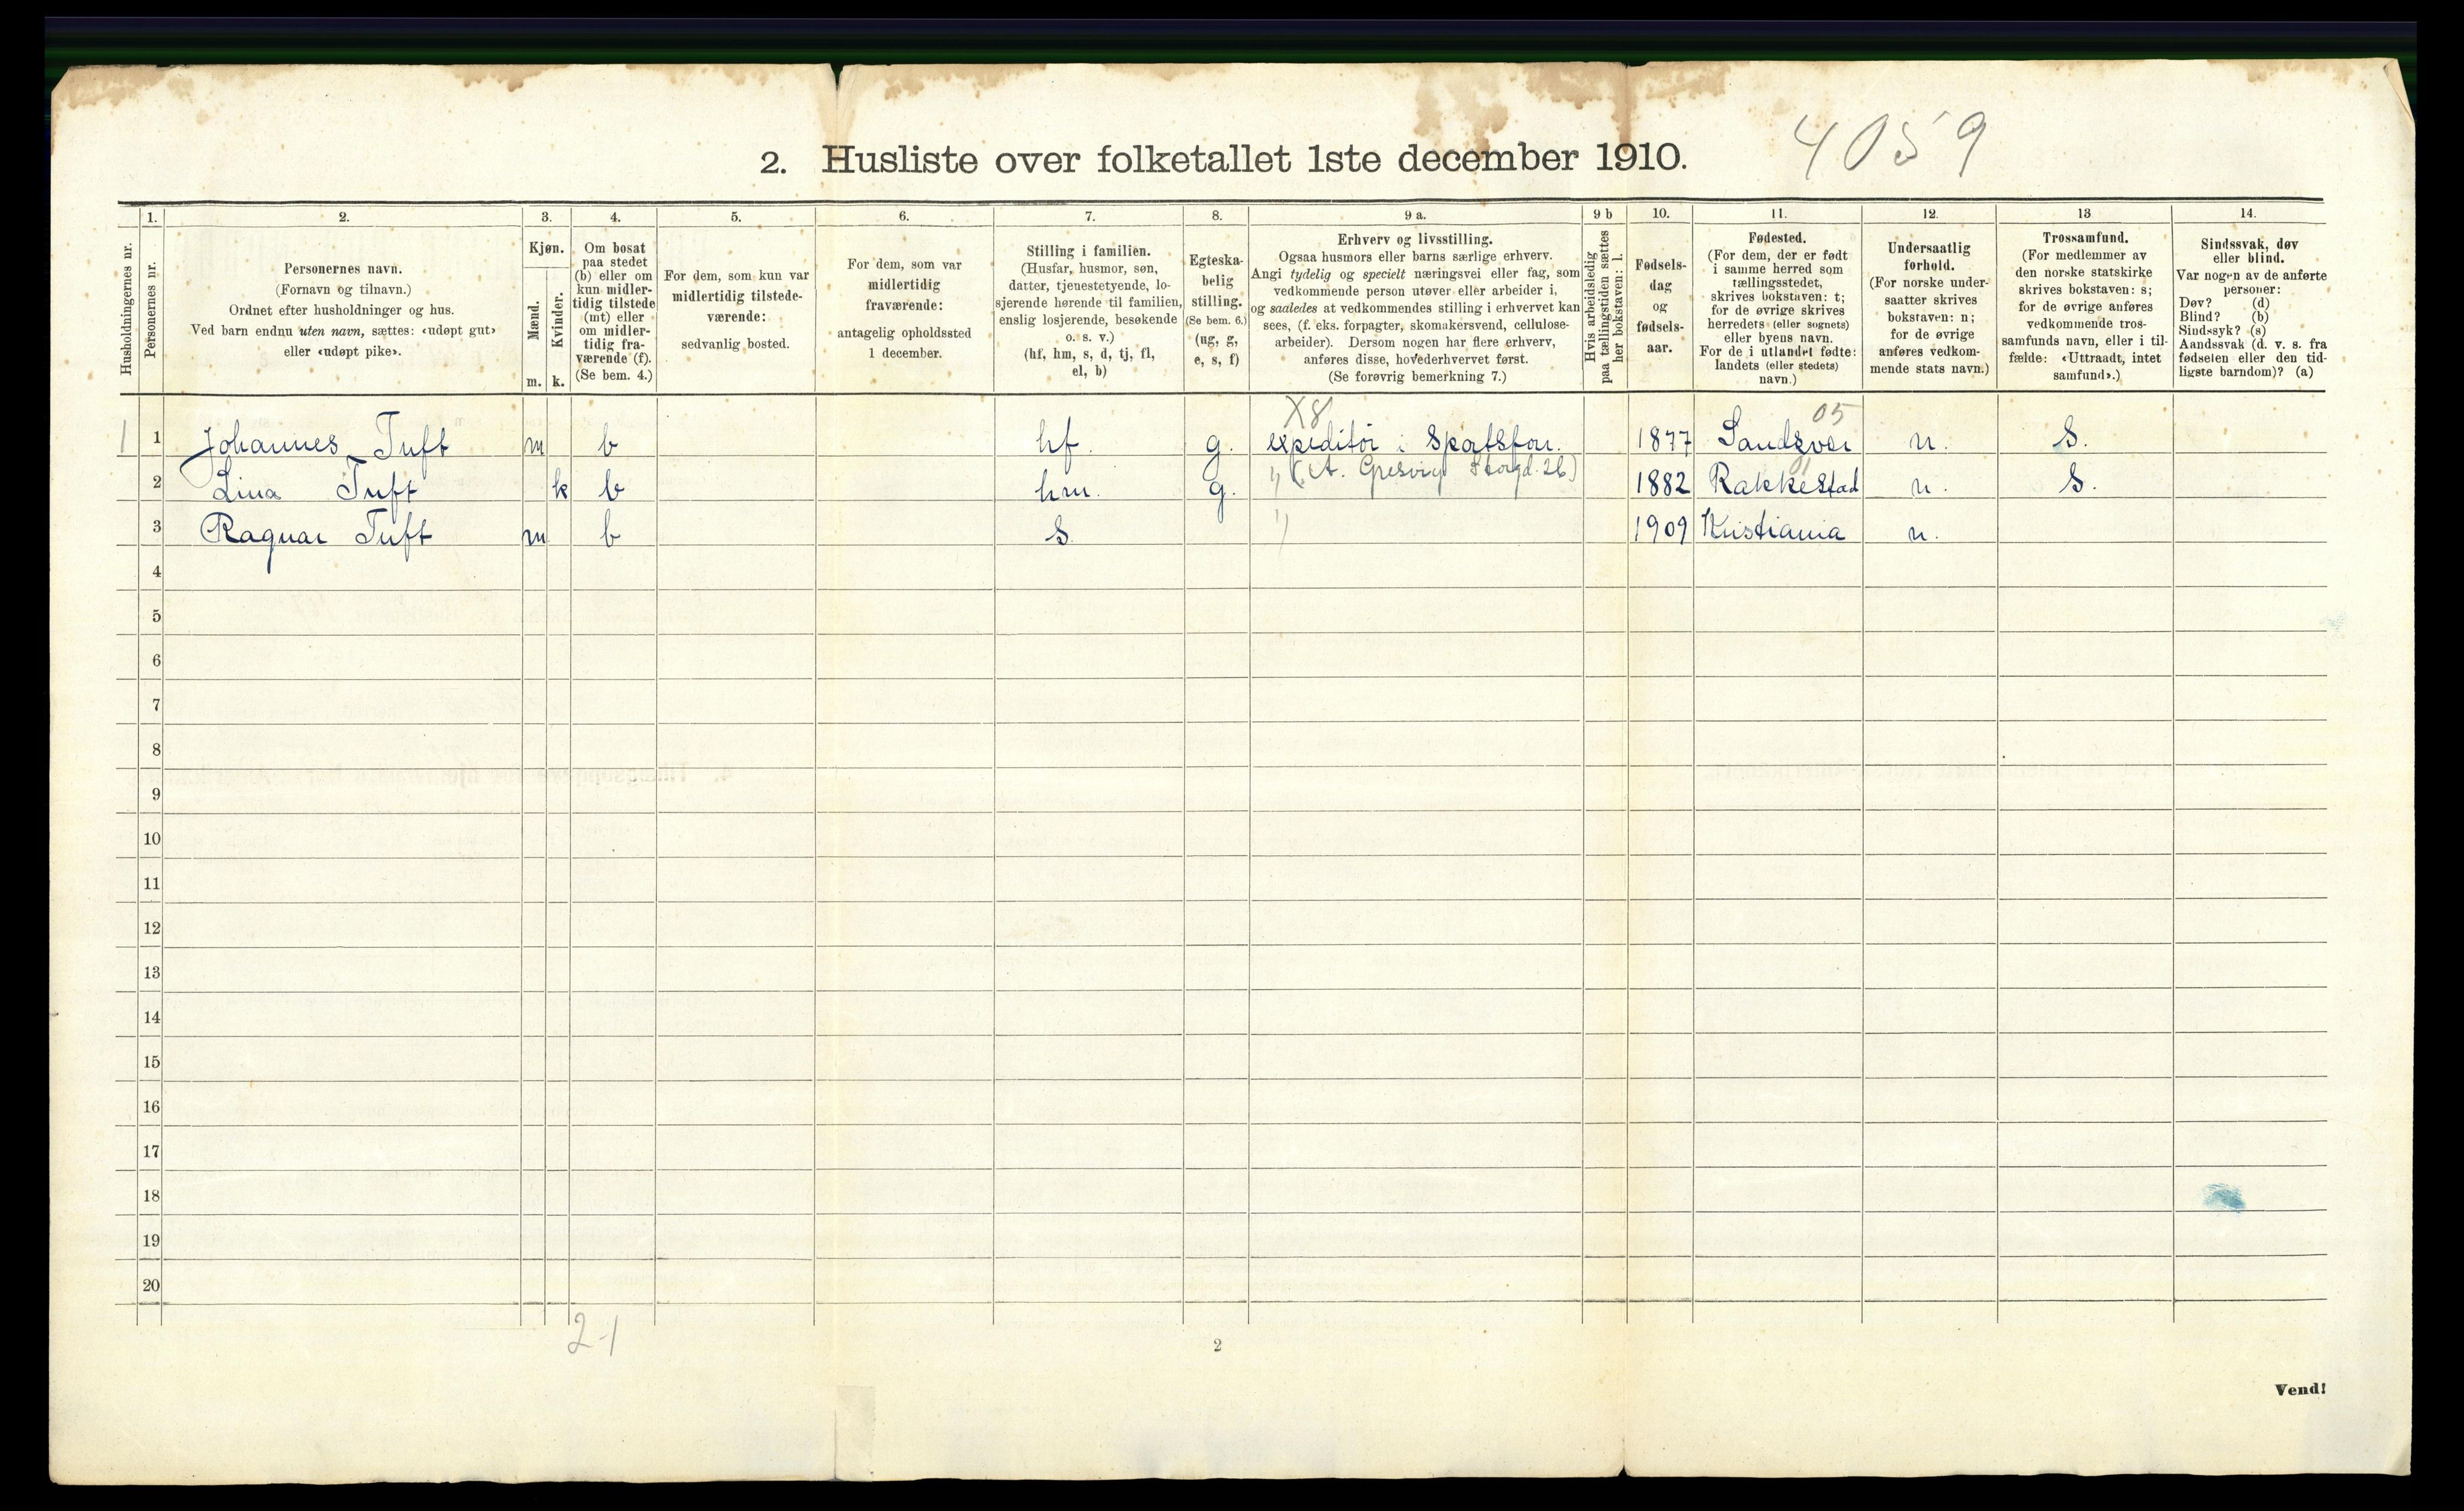 4059
2. Husliste over folketallet 1ste december 1910.
Husholdningernes nr.
1.
Personernes nr.
2.
Personernes navn.
(Fornavn og tilnavn.)
Ordnet efter husholdninger og hus.
Ved barn endnu uten navn, sættes: «udøpt gut»
eller «udøpt pike».
3.
Kjøn.
Mænd.
Kvinder.
m. k.
4.
Om bosat
paa stedet
(b) eller om
kun midler-
tidig tilstede
(mt) eller
om midler-
tidig fra-
værende (f).
(Se bem. 4.)
5.
For dem, som kun var
midlertidig tilstede-
værende:
sedvanlig bosted.
6.
For dem, som var
midlertidig
fraværende:
antagelig opholdssted
1 december.
7.
Stilling i familien.
(Husfar, husmor, søn,
datter, tjenestetyende, lo-
sjerende hørende til familien,
enslig losjerende, besøkende
o. s. v.)
(hf, hm, s, d, tj, fl,
el, b)
8.
Egteska-
belig
stilling.
(Se bem. 6.)
(ug, g,
e, s, f)
9 a.
Erhverv og livsstilling.
Ogsaa husmors eller barns særlige erhverv.
Angi tydelig og specielt næringsvei eller fag, som
vedkommende person utøver eller arbeider i,
og saaledes at vedkommendes stilling i erhvervet kan
sees, (f. eks. forpagter, skomakersvend, cellulose-
arbeider). Dersom nogen har flere erhverv,
anføres disse, hovederhvervet først.
(Se forøvrig bemerkning 7.)
9 b
Hvis arbeidsledig
paa tællingstiden sættes
her bokstaven: l.
10.
Fødsels-
dag
og
fødsels-
aar.
11.
Fødested.
(For dem, der er født
i samme herred som
tællingsstedet,
skrives bokstaven: t;
for de øvrige skrives
herredets (eller sognets)
eller byens navn.
For de i utlandet fødte:
landets (eller stedets)
navn.)
12.
Undersaatlig
forhold.
(For norske under-
saatter skrives
bokstaven: n;
for de øvrige
anføres vedkom-
mende stats navn.)
13
Trossamfund.
(For medlemmer av
den norske statskirke
skrives bokstaven: s;
for de øvrige anføres
vedkommende tros-
samfunds navn, eller i til-
fælde: «Uttraadt, intet
samfund».)
14.
Sindssvak, døv
eller blind.
Var nogen av de anførte
personer:
Døv? (d)
Blind? (b)
Sindssyk? (s)
Aandssvak (d. v. s. fra
fødselen eller den tid-
ligste barndom)? (a)
X8 05
1 1 Johannes Tuft m b hf. g. expeditør i Sportsforr. 1877 Sandsver n. S.
01
2 Lina Tuft k b hm. g. " (A. Gresvig Storgd. 26) 1882 Rakkestad n. S.
3 Ragnar Tuft m b S. " 1909 Kristiania n.
4
5
6
7
8
9
10
11
12
13
14
15
16
17
18
19
20
2-1
2
Vend!